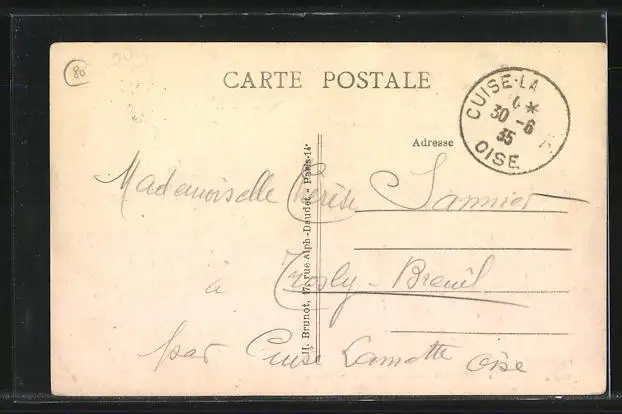 80
CARTE POSTALE
CUISE-LA
30-6
35
OISE
Adresse
Mademoiselle Thérèse Lannier
à Trosly-Breuil
par Cuise Lamotte Oise
H. Brunot, 17, rue Alph-Daudet - Paris-14e